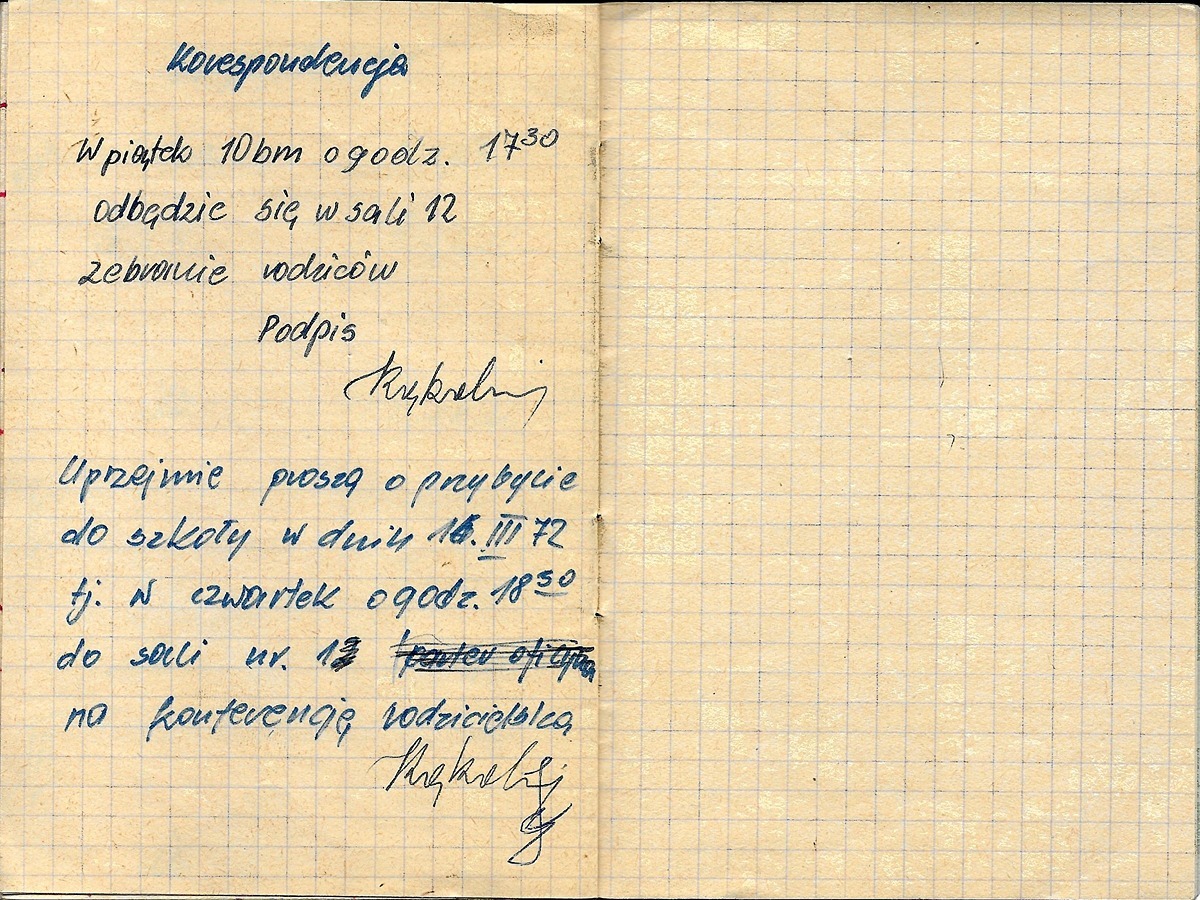 Korespondencja
W piątek 10 bm o godz. 17³⁰
odbędzie się w sali 12
zebranie rodziców
Podpis
Uprzejmie proszą o przybycie
do szkoły w dniu 16. III 72
tj. w czwartek o godz. 18⁵⁰
do sali nr. 12 parter oficyna
na konferencję rodzicielską